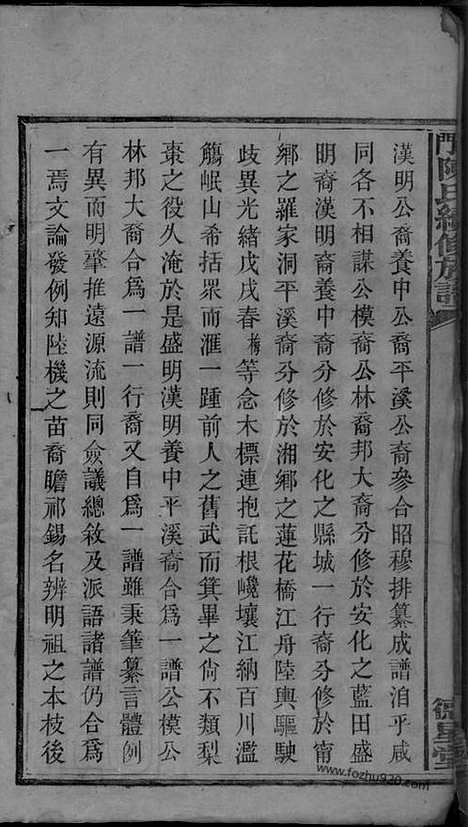 漢明公裔養中公裔平溪公裔參合昭穆排纂成譜洎乎咸
同各不相謀公模裔公林裔邦大裔分修於安化之藍田盛
明裔漢明裔養中裔分修於安化之縣城一行裔分修於甯
鄉之羅家洞平溪裔分修於湘鄉之蓮花橋江舟陸輿驅駛
歧異光緒戊戌春梅等念木標連抱託根巉壤江納百川濫
觴岷山希括眾而滙一踵前人之舊武而箕畢之尙不類梨
棗之役久淹於是盛明漢明養中平溪裔合爲一譜公模公
林邦大裔合爲一譜一行裔又自爲一譜雖秉筆纂言體例
有異而明肇推遠源流則同僉議總敘及派語諸譜仍合爲
一焉文論發例知陸機之苗裔瞻祁錫名辨明祖之本枝後
陳氏續修族譜
星堂
www.fozhu920.com